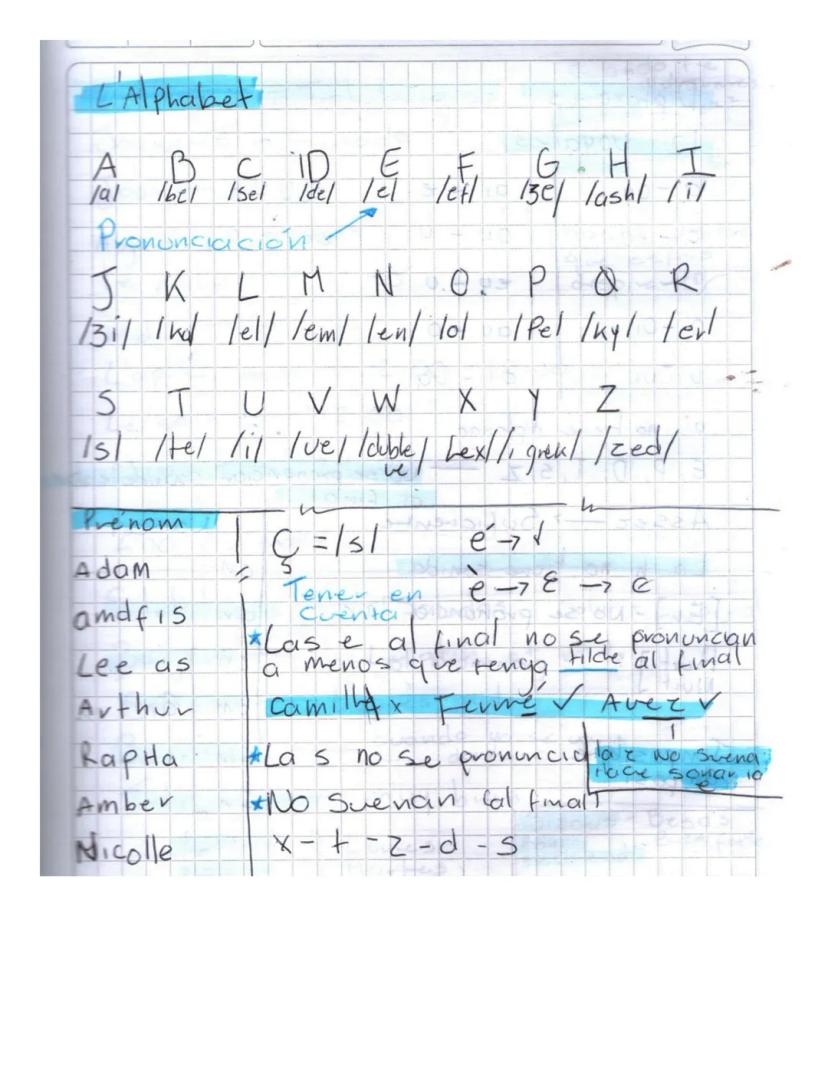 L'Alphabet
A B C D E F G H I
/a/ /be/ /se/ /de/ /e/ /ef/ /ʒe/ /ash/ /i/
Pronunciación
J K L M N O. P Q R
/ʒi/ /ka/ /el/ /em/ /en/ /o/ /Pe/ /ky/ /er/
S T U V W X Y Z
/s/ /te/ /i/ /ve/ /duble ve/ /ex/ /i grek/ /zed/
Prénom
Adam
amdfis
Lee as
Arthur
RapHa
Amber
Nicolle
Ç = /s/ é → ↓
Tener en cuenta
è → ɛ → e
*Las e al final no se pronuncian
a menos que tenga tilde al final
Camille x Fermé ✓ Avez ✓
*La s no se pronuncia
la z no suena
hace sonar la
e
*No suenan (al final)
x - t - z - d - s